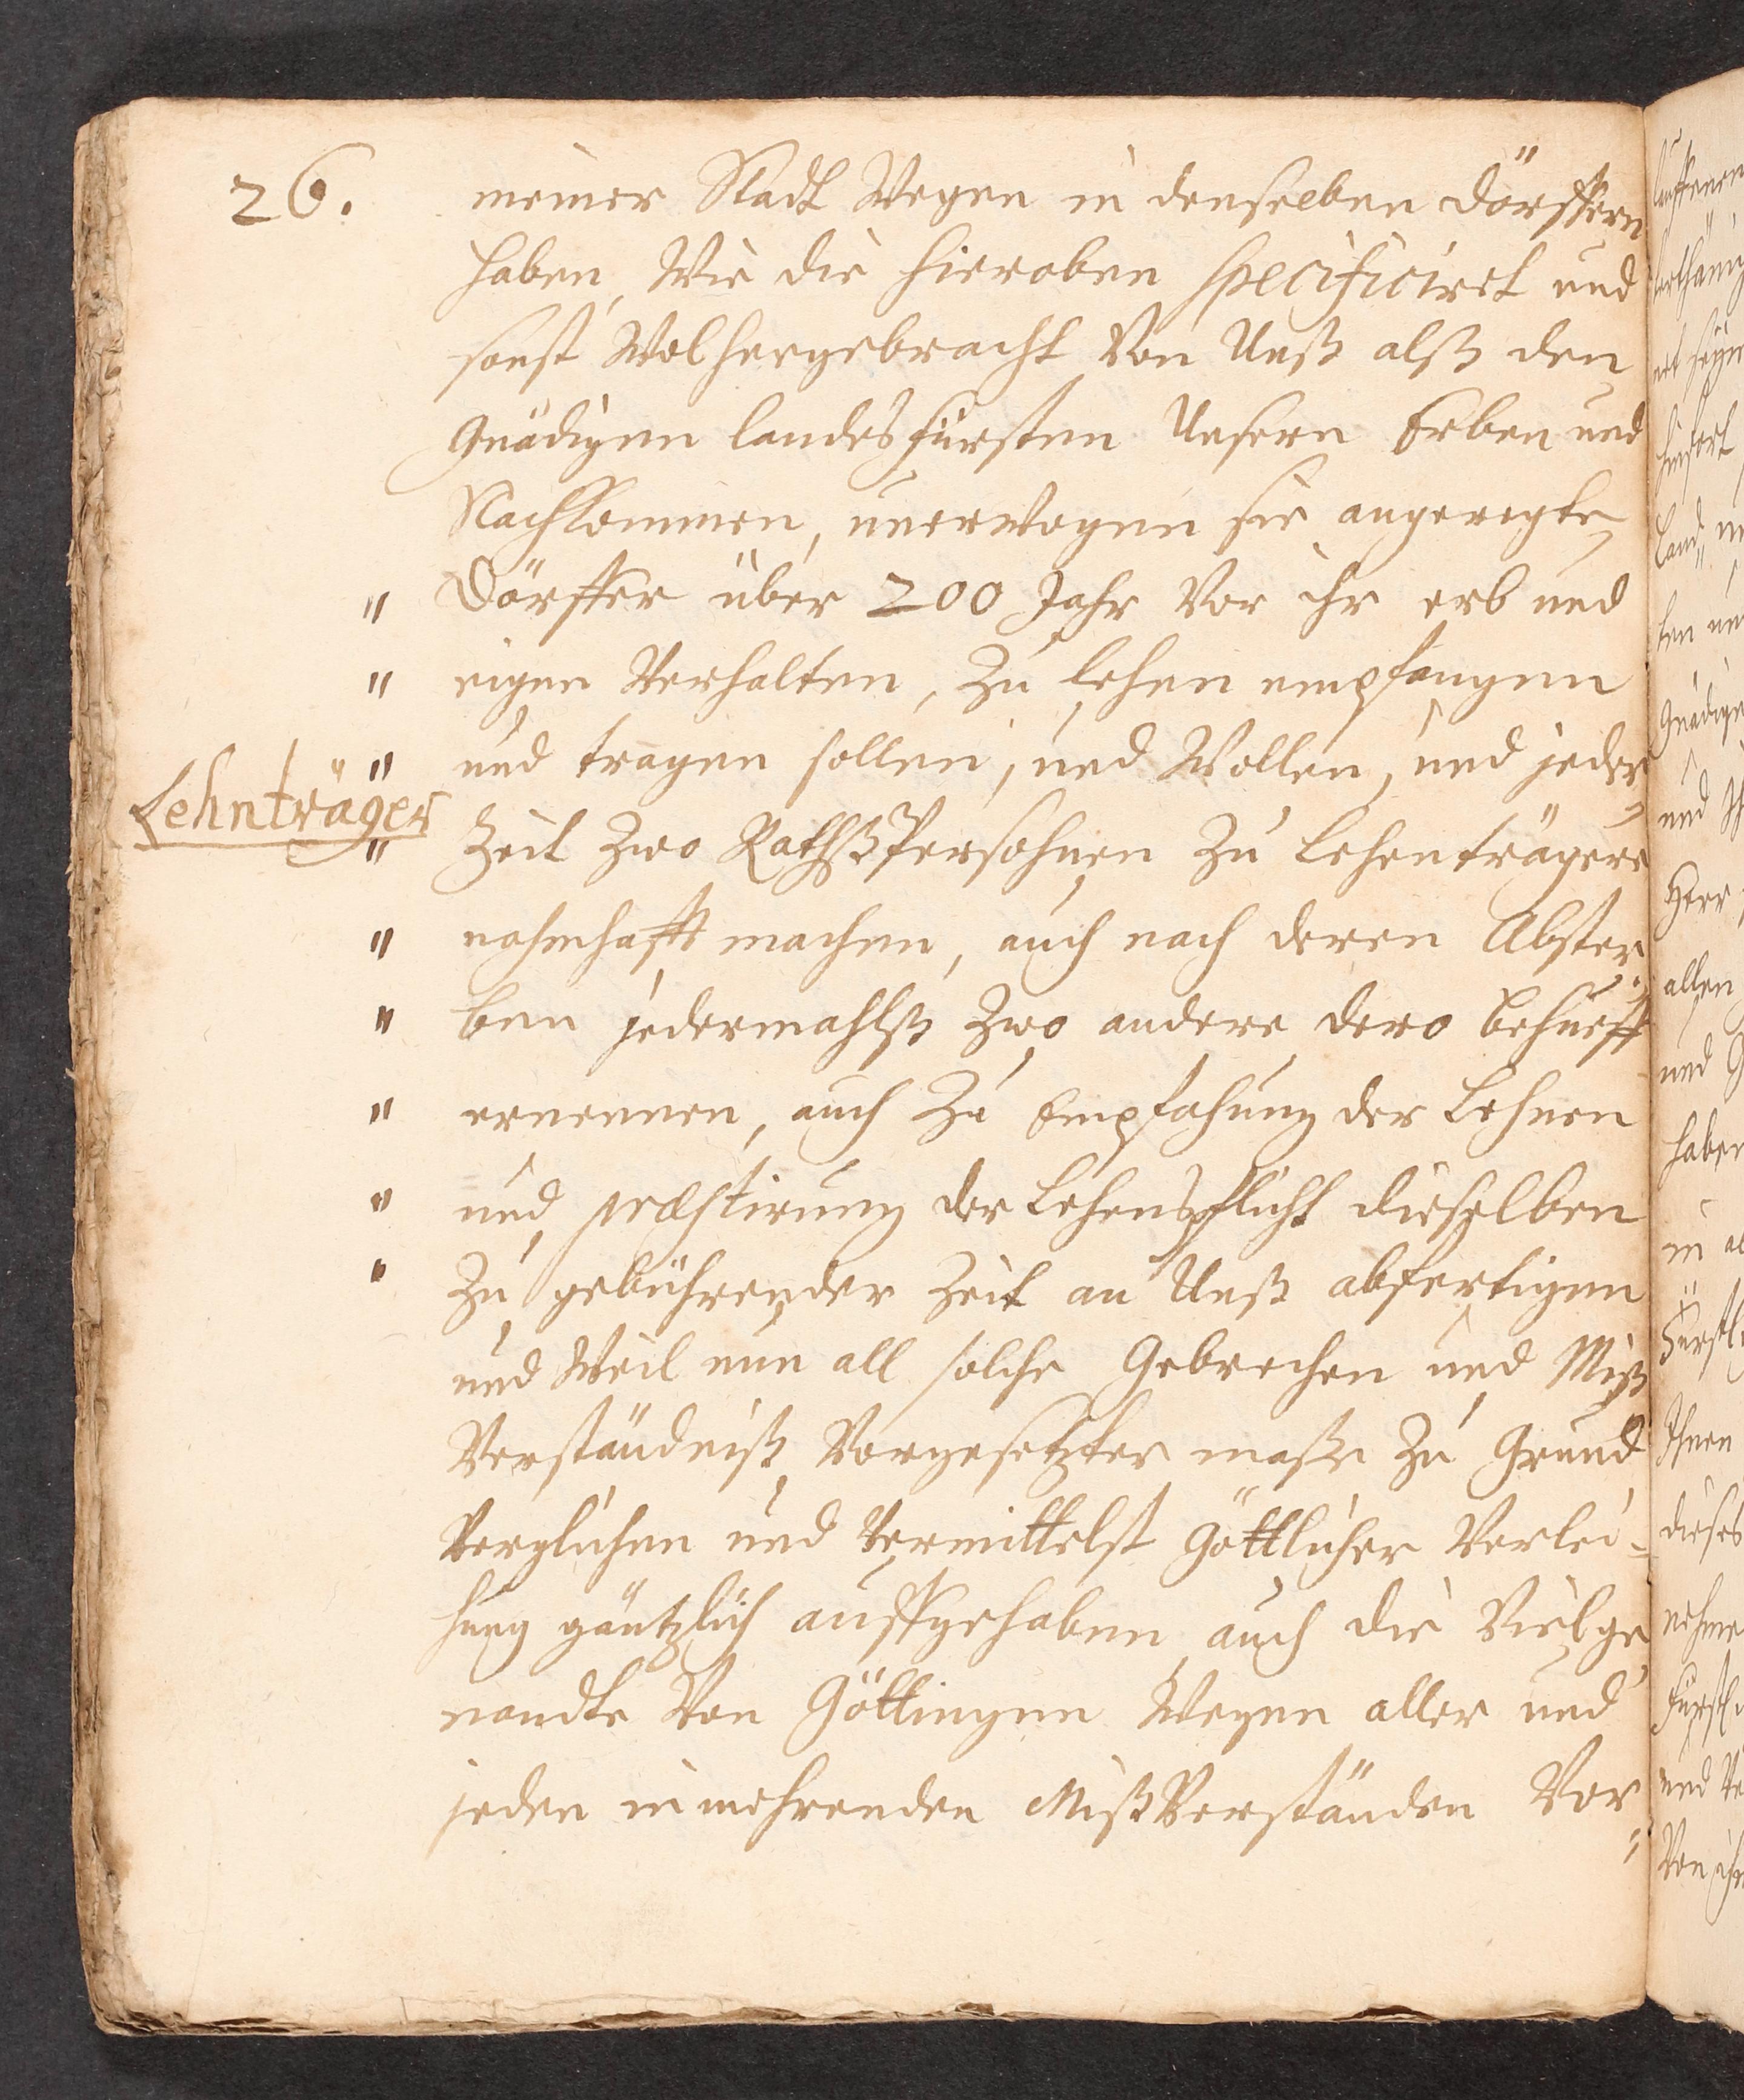 26.
meiner Stadt Wegen in denselben Dörffern
haben, Wie die hieroben specificiret und
sonst Wolhergebracht Von Unß alß den
Gnädigen landesfürsten Unsern Erben und
Nachkommen, unerwogen sie angeregte
" Dörffer über 200 Jahr Vor ihr erb und
" eigen Verhalten, Zu lehen empfangen
" und tragen sollen, und Wollen, und jeder
Lehnträger
" Zeit Zwo RathsPersohnen Zu Lehenträgere
" nahmhafft machen, auch nach deren Abster-
" ben jedermahlß Zwo andere dero behueff
" ernennen, auch Zu Empfahung der Lehnen
" und præstirung der Lehenspflicht dieselben
" Zu gebührender Zeit an Unß abfertigen
und Weil nun all solche Gebrechen und Miß
Verständniß Vorgesetzter maße Zu Grund
Verglichen und Vermittelst Göttlicher Verlei-
hung gäntzlich auffgehaben, auch die Vielge
nandte Von Göttingen Wegen aller und
jeden in mehrenden MißVerständen Vor-